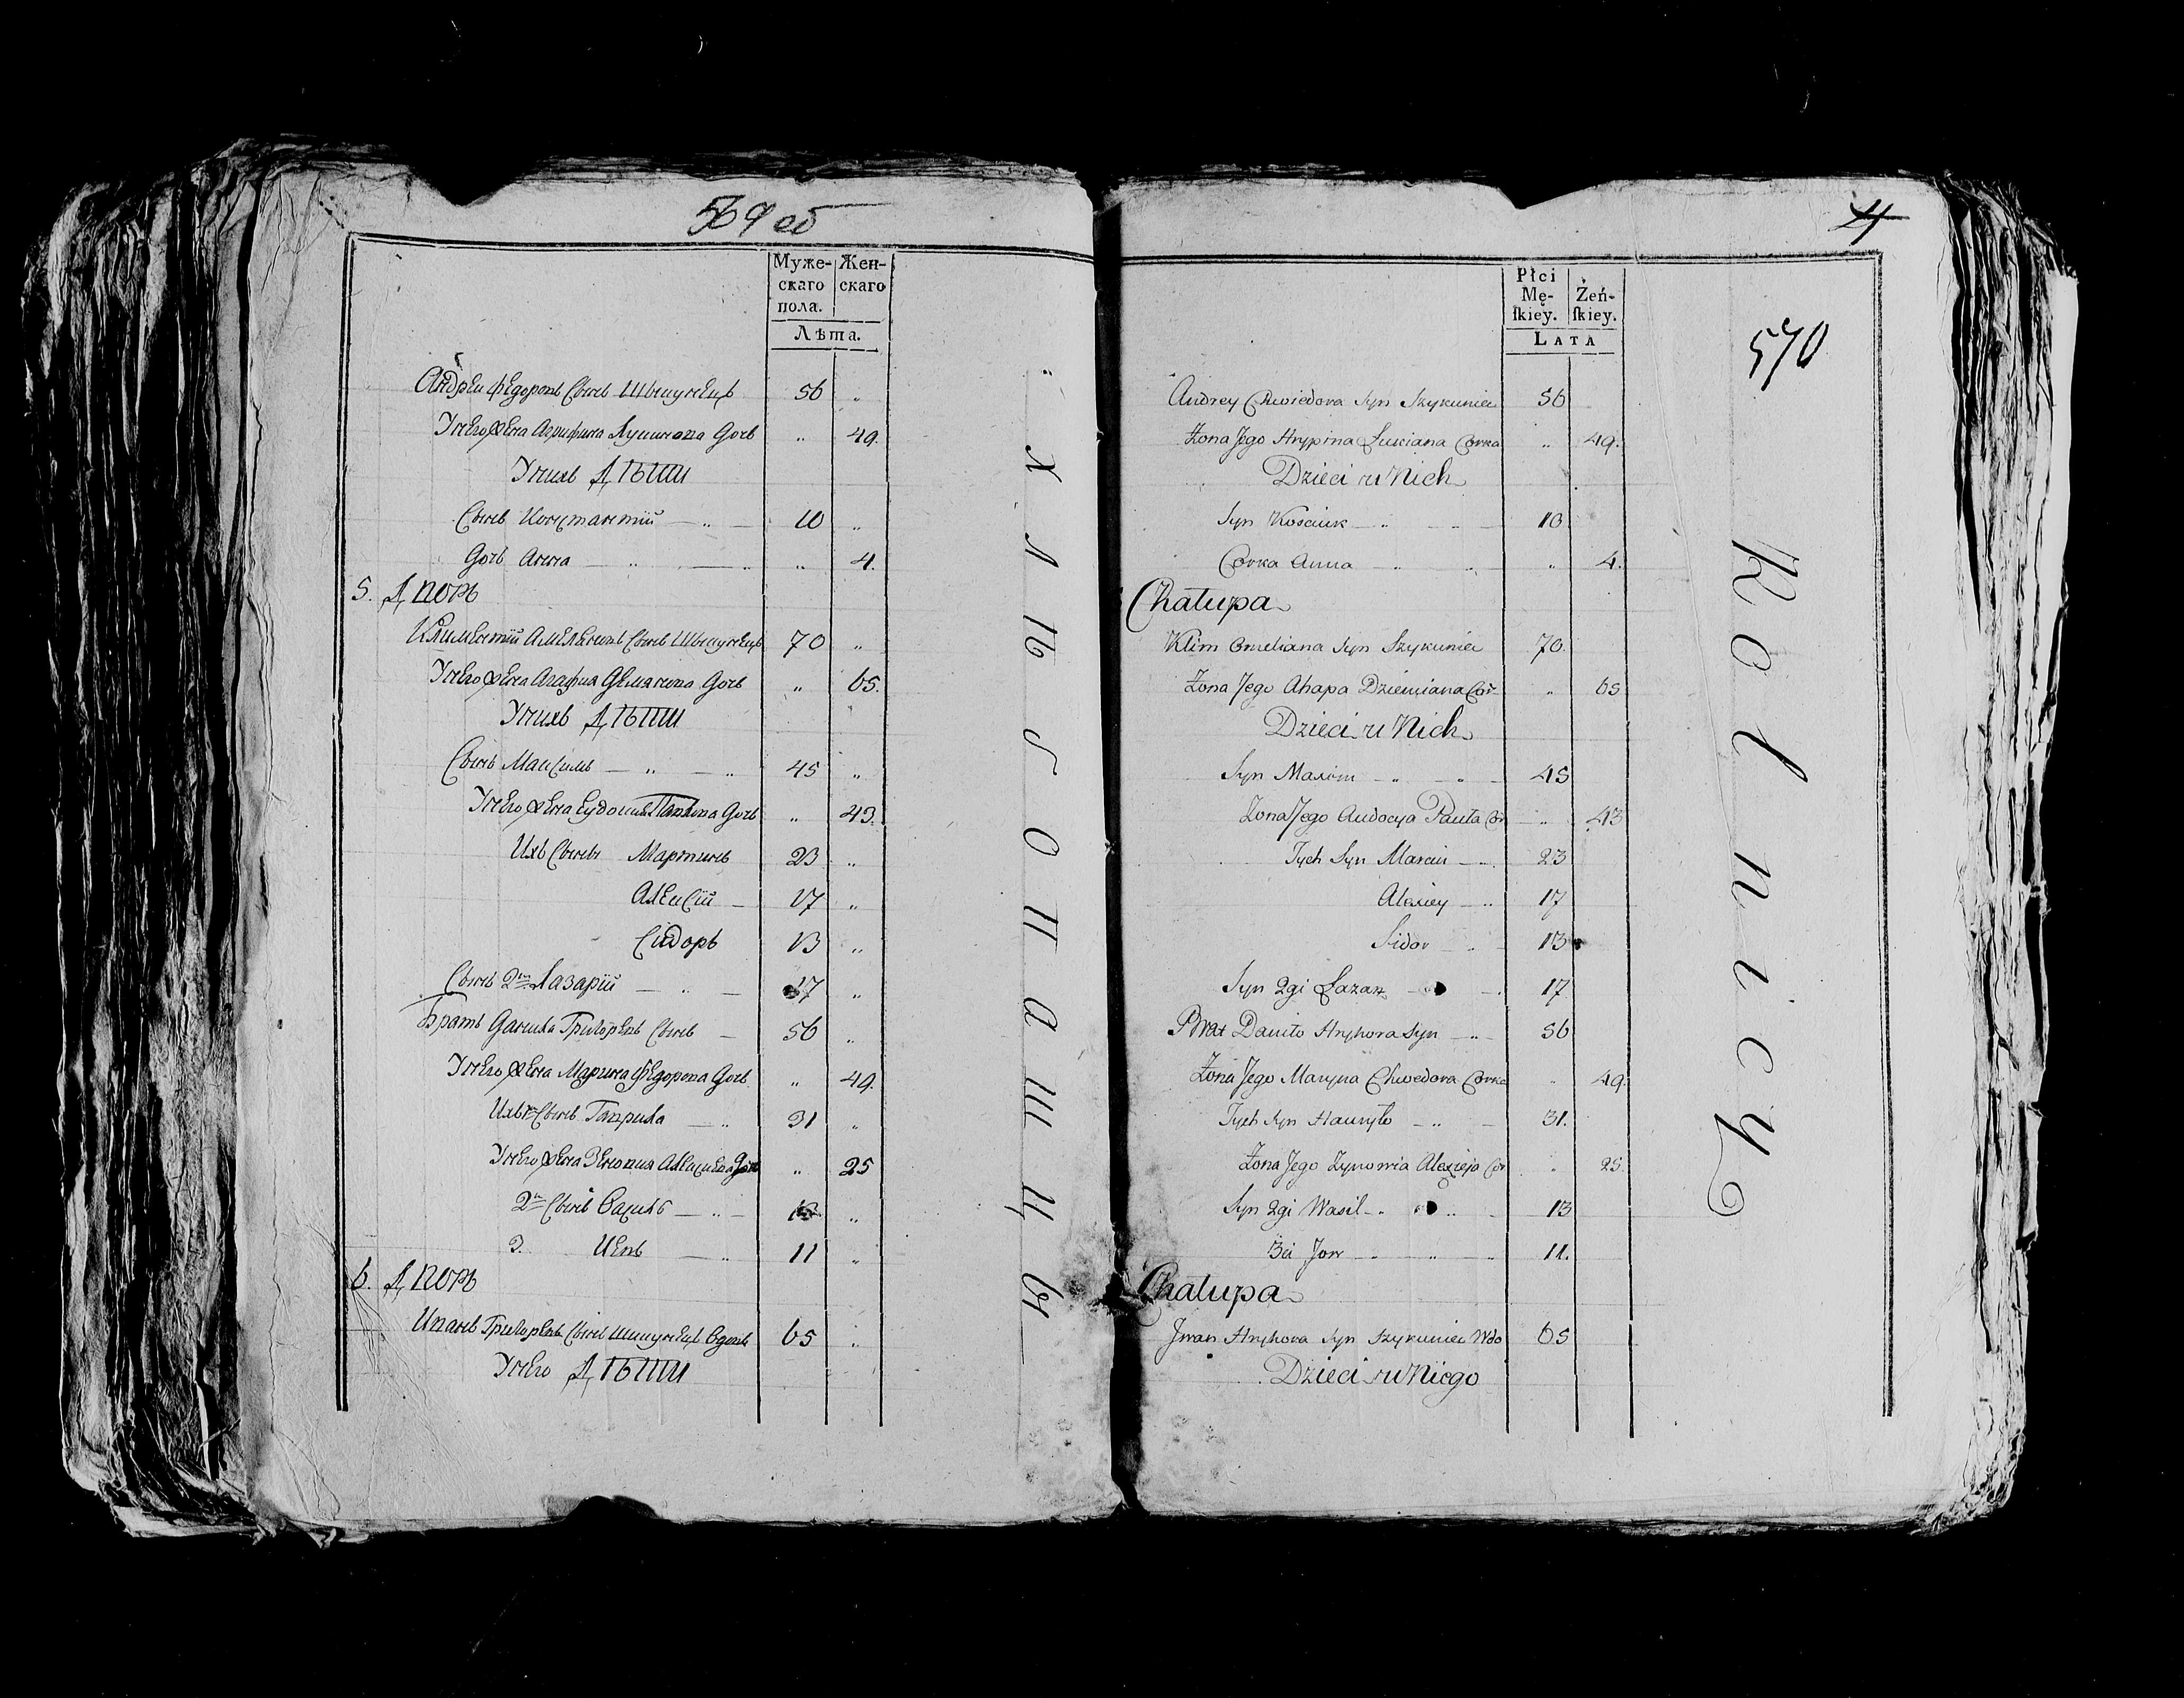 569 об
Муже-
скаго
пола.
Жен-
скаго
Лѣта.
Андрей Федоровъ Сынъ Шыкунецъ 56 "
У него Жена Агрифина Лукянова Дочь " 49.
У нихъ Дѣти
Сынъ Константій — " — 10 "
Дочь Анна — " — " " 4.
5. Дворъ
Климентій Амеляновъ Сынъ Шыкунецъ 70 "
У него Жена Агафия Демянова Дочь " 65.
У нихъ Дѣти
Сынъ Максимъ — " — " 45 "
У него Жена Еудокия Павлова Дочь " 43.
Ихъ Сынъ Мартинъ 23 "
Алексій — 17 "
Сидоръ 13 "
Сынъ 2й Лазарій — " — 17 "
Братъ Данила Григорьевъ Сынъ — 56 "
У него Жена Марина Федорова Дочь " 49.
Ихъ Сынъ Гаврила — " 31 "
У него Жена Зеновия Алексеева Дочь " 25
2й Сынъ Василь — " — 13 "
3. Иевъ — " 11 "
6. Дворъ
Иванъ Григорьевъ Сынъ Шикунецъ Вдовъ 65 "
У него Дѣти
Хлѣбопашцы
4
570
Płci
Mę-
ſkiey.
Żeń-
ſkiey.
LATA
Andrey Chwiedora Syn Szykuniec 56
Żona Jego Hrypina Łukiana Corka " 49.
Dzieci u Nich
Syn Kościuk — " — 10
Corka Anna — " " " 4.
Chałupa
Klim Omeliana Syn Szykuniec 70.
Żona Jego Ahapa Dziemiana Cor " 65
Dzieci u Nich
Syn Maxim — " " — 45
Żona Jego Audocya Pauła Cor — " 43
Tych Syn Marcin — " 23
Alexiey — " 17
Sidor — " 13
Syn 2gi Łazarz — " 17
Brat Daniło Hryhora Syn — " — 56
Żona Jego Maryna Chwedora Corka " 49.
Tych Syn Hauryło — " — 31.
Żona Jego Zynowia Alexieja Cor " 25.
Syn 2gi Wasil — " " — 13
3ci Jow — " " 11.
Chałupa
Jwan Hryhora Syn Szykuniec Wdo 65
Dzieci u Niego
Rolnicy